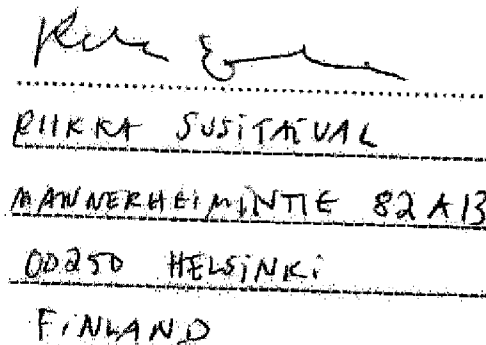 RIIKKA SUSITAIVAL
MANNERHEIMINTIE 82 A 13
00250 HELSINKI
FINLAND